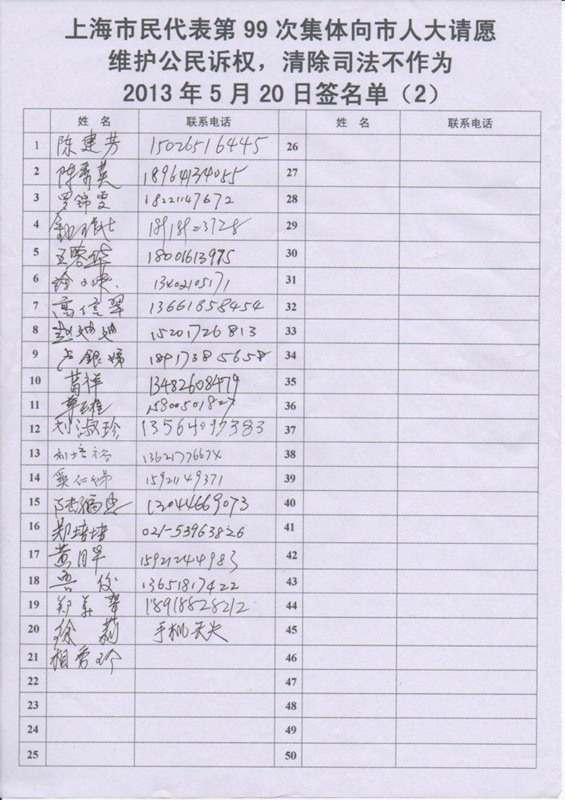 上海市民代表第 99 次集体向市人大请愿
维护公民诉权，清除司法不作为
2013 年 5 月 20 日签名单（2）
姓 名 联系电话 姓 名 联系电话
1 陈建芳 15026516445 26
2 陈秀英 18964134055 27
3 罗锦雯 18221147672 28
4 29
5 王蓉华 18001613975 30
6 徐 13402105171 31
7 高信翠 13661858454 32
8 赵迪迪 15201726813 33
9 卢银娣 18917385658 34
10 葛祥 13482608479 35
11 36
12 刘淑珍 37
13 13621776674 38
14 奚仁娣 15921149371 39
15 陆福忠 40
16 郑培培 021-53963826 41
17 黄月琴 15921244983 42
18 鲁俊 13651817422 43
19 郑 18918828212 44
20 徐莉 手机丢失 45
21 相秀珍 46
22 47
23 48
24 49
25 50